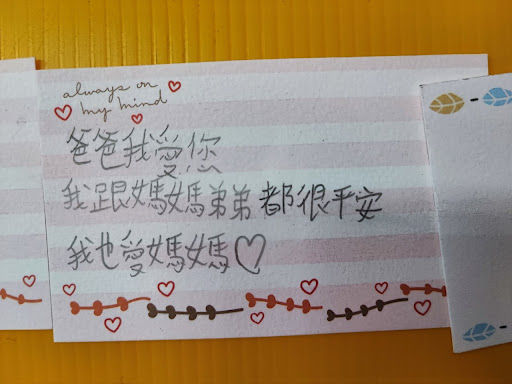 always on
my mind
爸爸我愛您
我跟媽媽弟弟都很平安
我也愛媽媽♡